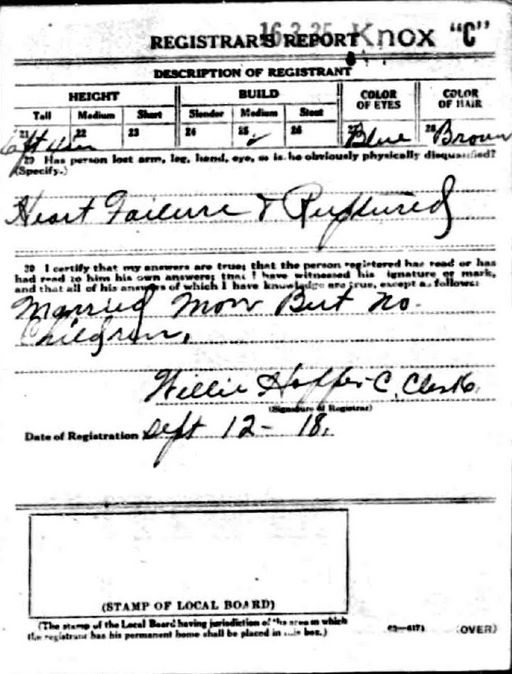 16-3-25 Knox "C"
REGISTRAR'S REPORT
DESCRIPTION OF REGISTRANT
HEIGHT BUILD COLOR OF EYES COLOR OF HAIR
Tall Medium Short Slender Medium Stout
21 22 23 24 25 ✓ 26 27 Blue 28 Brown
6ft
29 Has person lost arm, leg, hand, eye, or is he obviously physically disqualified?
(Specify.)
Heart Failure & Ruptured
30 I certify that my answers are true; that the person registered has read or has
had read to him his own answers; that I have witnessed his signature or mark,
and that all of his answers of which I have knowledge are true, except as follows:
Married Mon But no.
Children.
Willie C. Clerk.
(Signature of Registrar)
Date of Registration Sept 12 - 18.
(STAMP OF LOCAL BOARD)
(The stamp of the Local Board having jurisdiction of the area in which
the registrant has his permanent home shall be placed in this box.)
03—6171 (OVER)